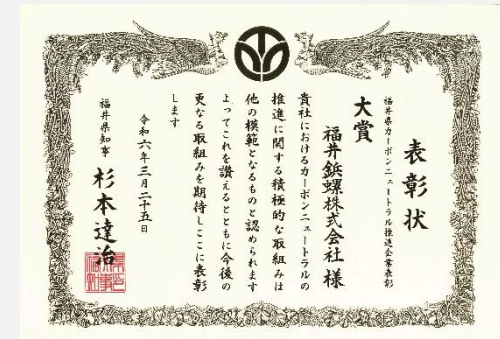 表彰状
福井県カーボンニュートラル推進企業表彰
大賞
福井鋲螺株式会社様
貴社におけるカーボンニュートラルの
推進に関する積極的な取組みは
他の模範となるものと認められます
よってこれを讃えるとともに今後の
更なる取組みを期待しここに表彰
します
令和六年三月二十五日
福井県知事 杉本達治